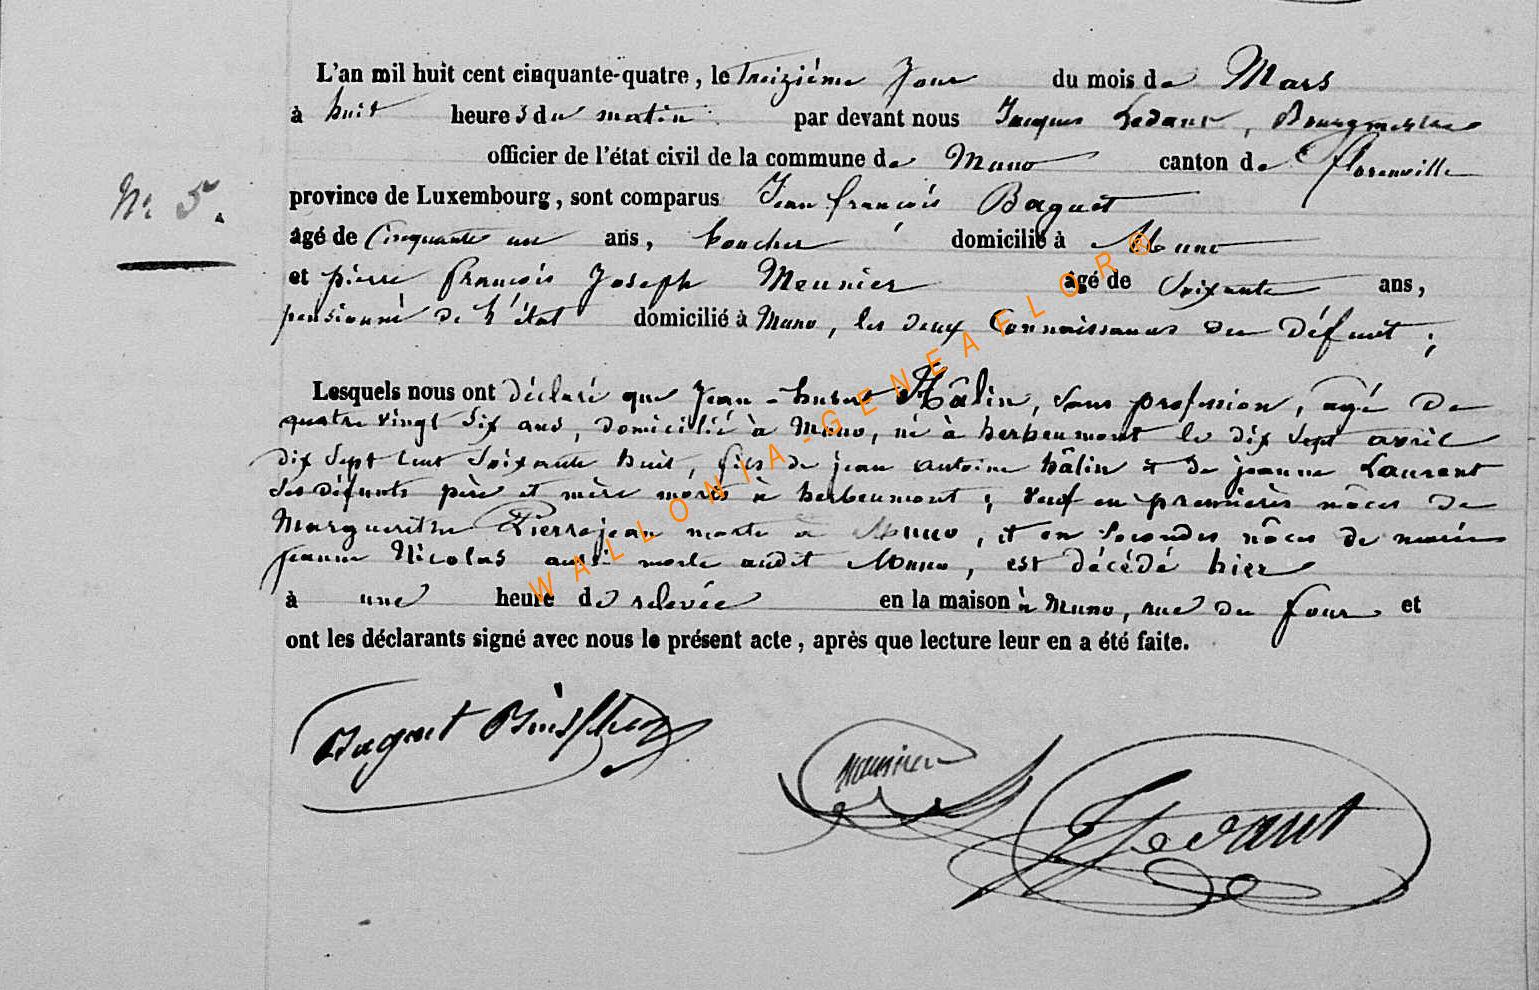 L'an mil huit cent cinquante-quatre, le treizième jour du mois de Mars
à huit heures du matin par devant nous Jacques Ledant, Bourgmestre
officier de l'état civil de la commune de Muno canton de florenville
N° 5.
province de Luxembourg, sont comparus Jean françois Baguet
âgé de Cinquante un ans, boucher domicilié à Muno
et pierre françois Joseph Meunier âgé de Soixante ans,
pensionné de l'état domicilié à Muno, les deux Connaissances du défunt ;
Lesquels nous ont déclaré que Jean-hubert Hâlin, sans profession, agé de
quatre vingt six ans, domicilié à Muno, né à herbeumont le dix sept avril
dix sept cent soixante huit, fils de jean antoine hâlin et de jeanne Laurent
ses défunts père et mère morts à herbeumont ; veuf en premières nôces de
Marguerithe Pierrejean morte à Muno, et en secondes nôces de marie
jeanne Nicolas aussi morte audit Muno, est décédé hier
à une heure de relevée en la maison à Muno, rue du four et
ont les déclarants signé avec nous le présent acte, après que lecture leur en a été faite.
Baguet
meunier
Ledant
WALLONIA-GENEAFLOR®